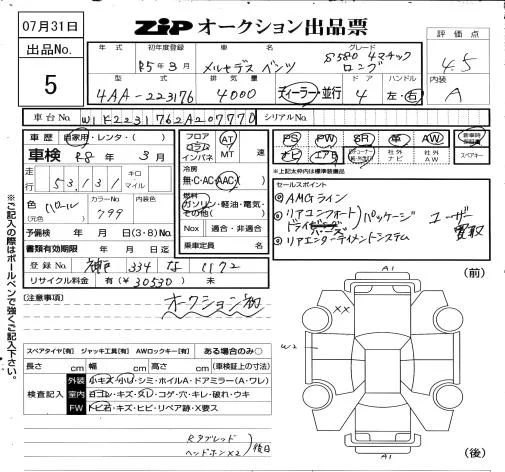 07月31日
ZIPオークション出品票
評価点
4.5
出品No.
5
年式 初年度登録 車名 グレード
R5年3月 メルセデス ベンツ S580 4マチック ロング
型式 排気量 ドア ハンドル
4AA-223176 4000 ディーラー・並行 4 左・右
内装
A
車台No. W1K2231762A207770 シリアルNo.
車歴 自家用・レンタ・( )
車検 R8年3月
走行 53,131 キロ マイル
色(元色) パール カラーNo. 799 内装色
予備検 年 月 日(3・8)No.
書類有効期限 年 月 日迄
登録No. 神戸 334 な 1172
リサイクル料金 有(¥30530) 未
フロア コラム インパネ AT MT 速
冷房 無・C・AC・AAC・( )
燃料 ガソリン・軽油・電気・その他( )
Nox 適合・非適合
乗車定員 名
PS PW SR 革 AW
ナビ エアB 社外ナビ 社外AW
新車時保証書
スペアキー
*上記太枠内は標準装備品
セールスポイント
◎AMGライン
◎リアコンフォートパッケージ
◎リアエンターテイメントシステム
ユーザー買取
(注意事項)
オークション初
スペアタイヤ[有] ジャッキ工具[有] AWロックキー[有] ある場合のみ○
長さ cm 幅 cm 高さ cm (車検証上の寸法)
検査記入
外装 小キズ・小U・シミ・ホイルA・ドアミラー(A・ワレ)
室内 ヨゴレ・キズ・スレ・コゲ・穴・キレ・破れ・ウキ
FW トビ石・キズ・ヒビ・リペア跡・X要ス
Rタブレット
ヘッドホン×2 後日
A1
(前)
XX
W2
A1
(後)
★ご記入の際はボールペンで強くご記入下さい。